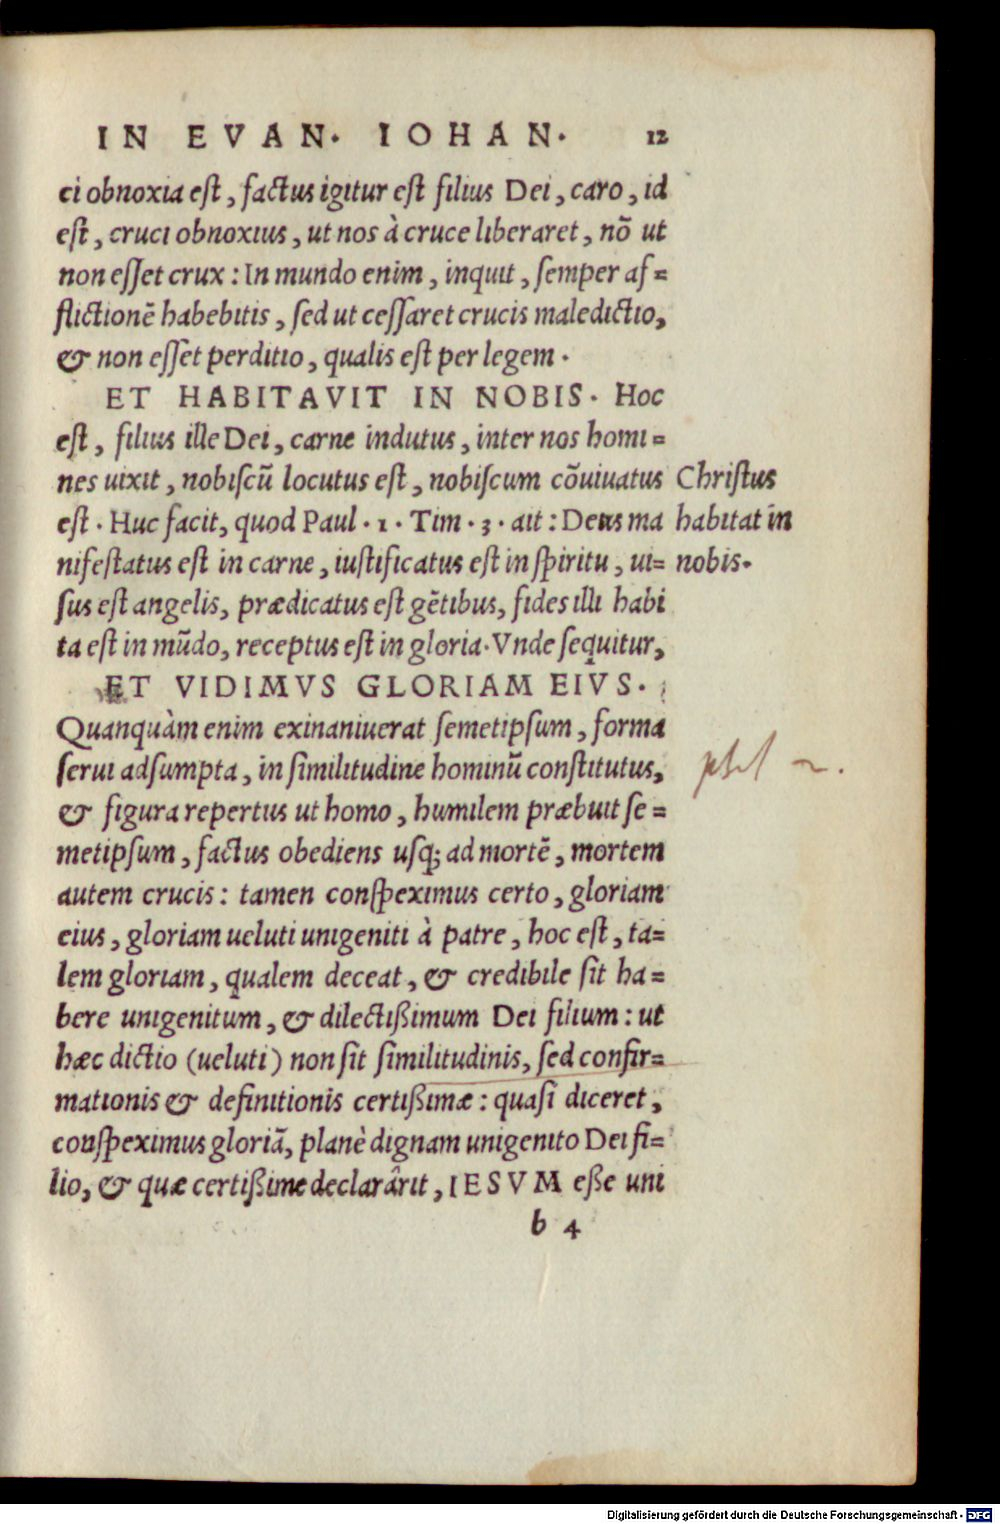 IN EVAN. IOHAN. 12
ci obnoxia est, factus igitur est filius Dei, caro, id
est, cruci obnoxius, ut nos à cruce liberaret, nõ ut
non esset crux: In mundo enim, inquit, semper af=
flictionẽ habebitis, sed ut cessaret crucis maledictio,
& non esset perditio, qualis est per legem.
ET HABITAVIT IN NOBIS. Hoc
est, filius ille Dei, carne indutus, inter nos homi=
nes uixit, nobiscũ locutus est, nobiscum cõuiuatus
est. Huc facit, quod Paul. 1. Tim. 3. ait: Deus ma
nifestatus est in carne, iustificatus est in spiritu, ui=
sus est angelis, prædicatus est gẽtibus, fides illi habi
ta est in mũdo, receptus est in gloria. Vnde sequitur,
Christus
habitat in
nobis.
ET VIDIMVS GLORIAM EIVS.
Quanquàm enim exinaniuerat semetipsum, forma
serui adsumpta, in similitudine hominũ constitutus,
& figura repertus ut homo, humilem præbuit se=
metipsum, factus obediens usq; ad mortẽ, mortem
autem crucis: tamen conspeximus certo, gloriam
eius, gloriam ueluti unigeniti à patre, hoc est, ta=
lem gloriam, qualem deceat, & credibile sit ha=
bere unigenitum, & dilectißimum Dei filium: ut
hæc dictio (ueluti) non sit similitudinis, sed confir=
mationis & definitionis certißimæ: quasi diceret,
conspeximus gloriã, planè dignam unigenito Dei fi=
lio, & quæ certißime declarârit, IESVM eße uni
phil 2.
b 4
Digitalisierung gefördert durch die Deutsche Forschungsgemeinschaft - DFG